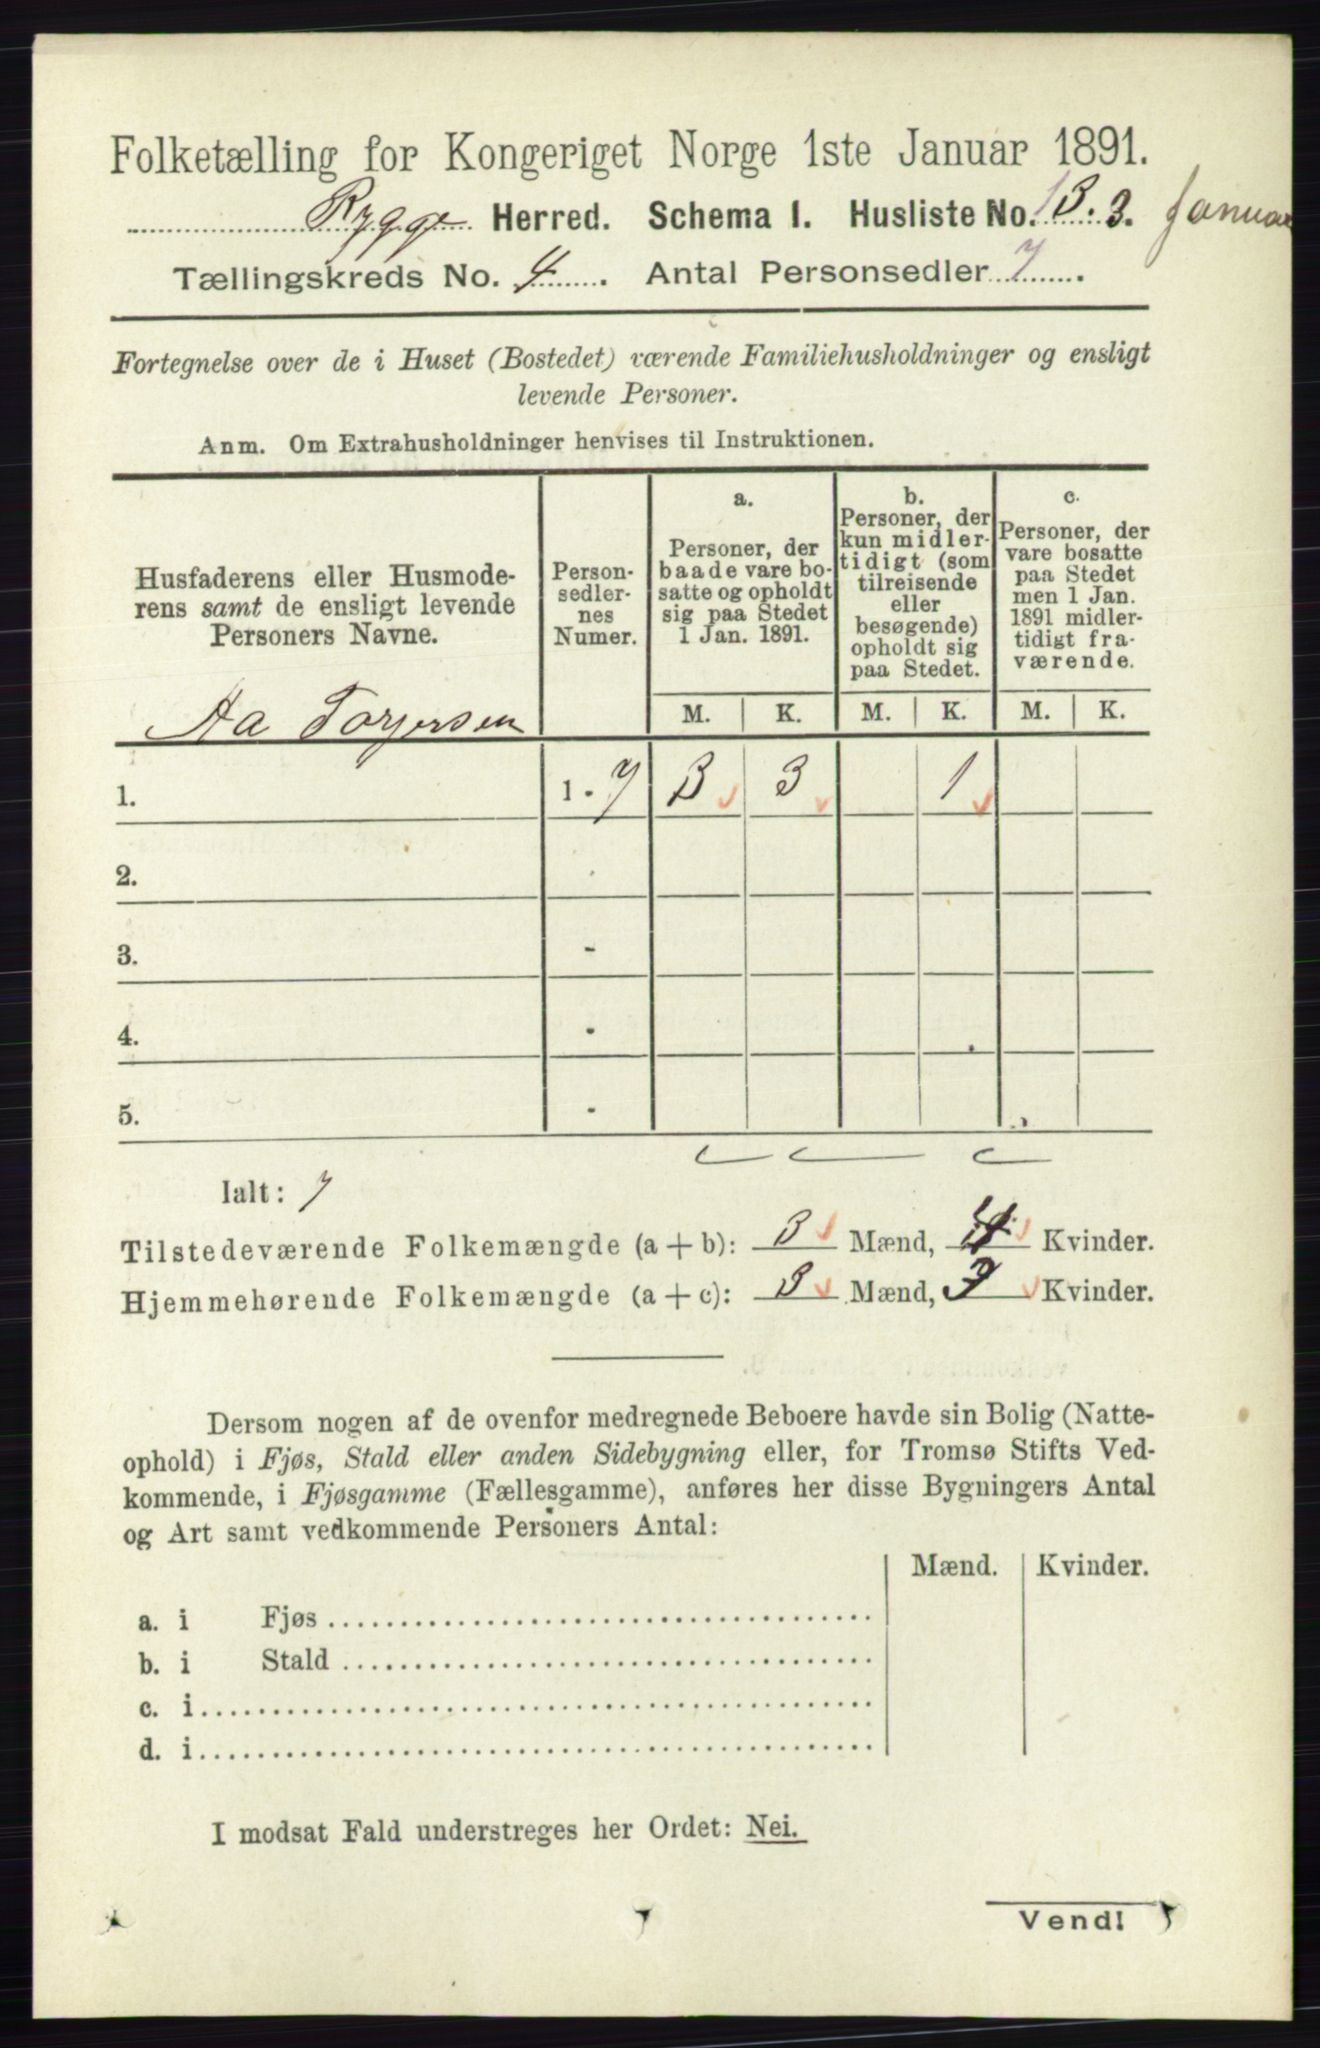 Folketælling for Kongeriget Norge 1ste Januar 1891.
Rygge Herred. Schema I. Husliste No. 13. 3. Januar
Tællingskreds No. 4. Antal Personsedler 7.
Fortegnelse over de i Huset (Bostedet) værende Familiehusholdninger og ensligt
levende Personer.
Anm. Om Extrahusholdninger henvises til Instruktionen.
Husfaderens eller Husmode-
rens samt de ensligt levende
Personers Navne.
Person-
sedler-
nes
Numer.
a.
Personer, der
baade vare bo-
satte og opholdt
sig paa Stedet
1 Jan. 1891.
b.
Personer, der
kun midler-
tidigt (som
tilreisende
eller
besøgende)
opholdt sig
paa Stedet.
c.
Personer, der
vare bosatte
paa Stedet
men 1 Jan.
1891 midler-
tidigt fra-
værende.
M. K. M. K. M. K.
Aa Torjersen
1. 1 - 7 3 3 1
2.
3. -
4. -
5. -
Ialt: 7
Tilstedeværende Folkemængde (a + b): 3 Mænd, 4 Kvinder.
Hjemmehørende Folkemængde (a + c): 3 Mænd, 3 Kvinder.
Dersom nogen af de ovenfor medregnede Beboere havde sin Bolig (Natte-
ophold) i Fjøs, Stald eller anden Sidebygning eller, for Tromsø Stifts Ved-
kommende, i Fjøsgamme (Fællesgamme), anføres her disse Bygningers Antal
og Art samt vedkommende Personers Antal:
Mænd. Kvinder.
a. i Fjøs
b. i Stald
c. i
d. i
I modsat Fald understreges her Ordet: Nei.
Vend!